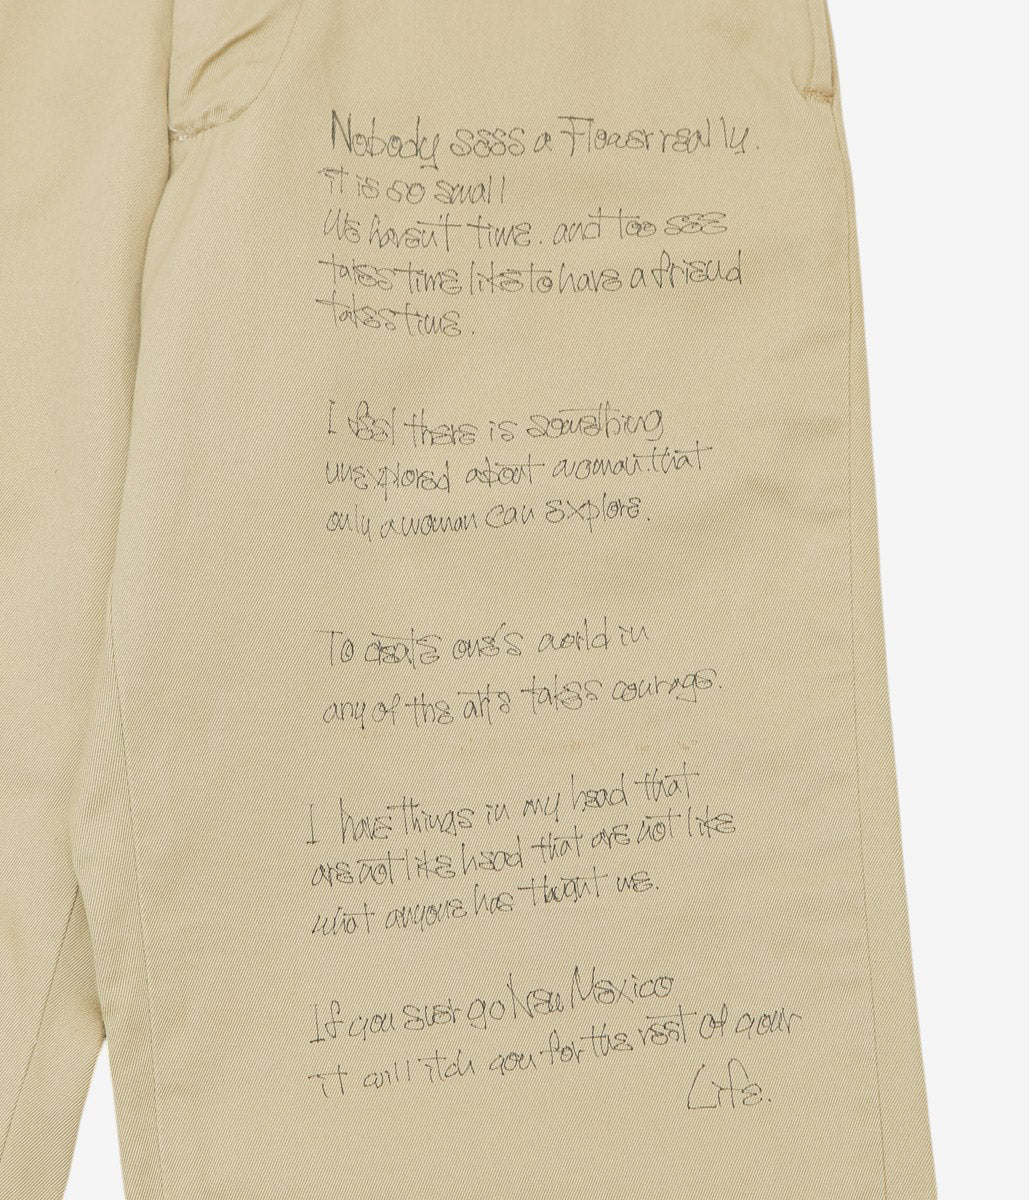 Nobody sees a Flower really.
it is so small
We haven't time. and too see
takes time like to have a friend
takes time.
I feel there is something
unexplored about a woman. that
only a woman can explore.
To create one's world in
any of the arts takes courage.
I have things in my head that
are not like head that are not like
what anyone has thught me.
If you ever go New Mexico
it will itch you for the rest of your
Life.